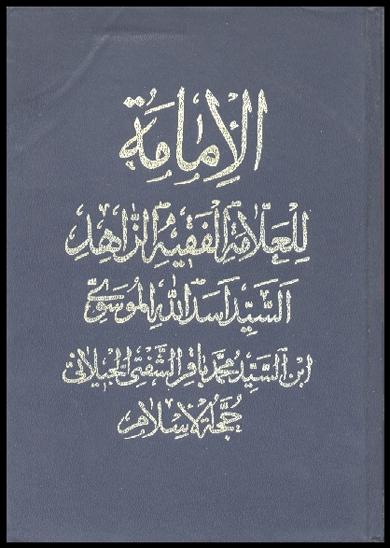 الإمامة
للعلامة الفقيه الزاهد
السيد أسد الله الموسوي
ابن السيد محمد باقر الشفتي الجيلاني
حجة الإسلام